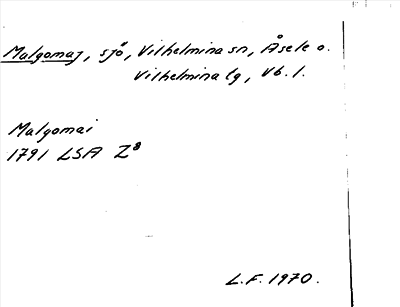 Malgomaj, sjö, Vilhelmina sn, Åsele o.
Vilhelmina lg, Vb. l.
Malgomai
1791 LSA Z8
L.F. 1970.